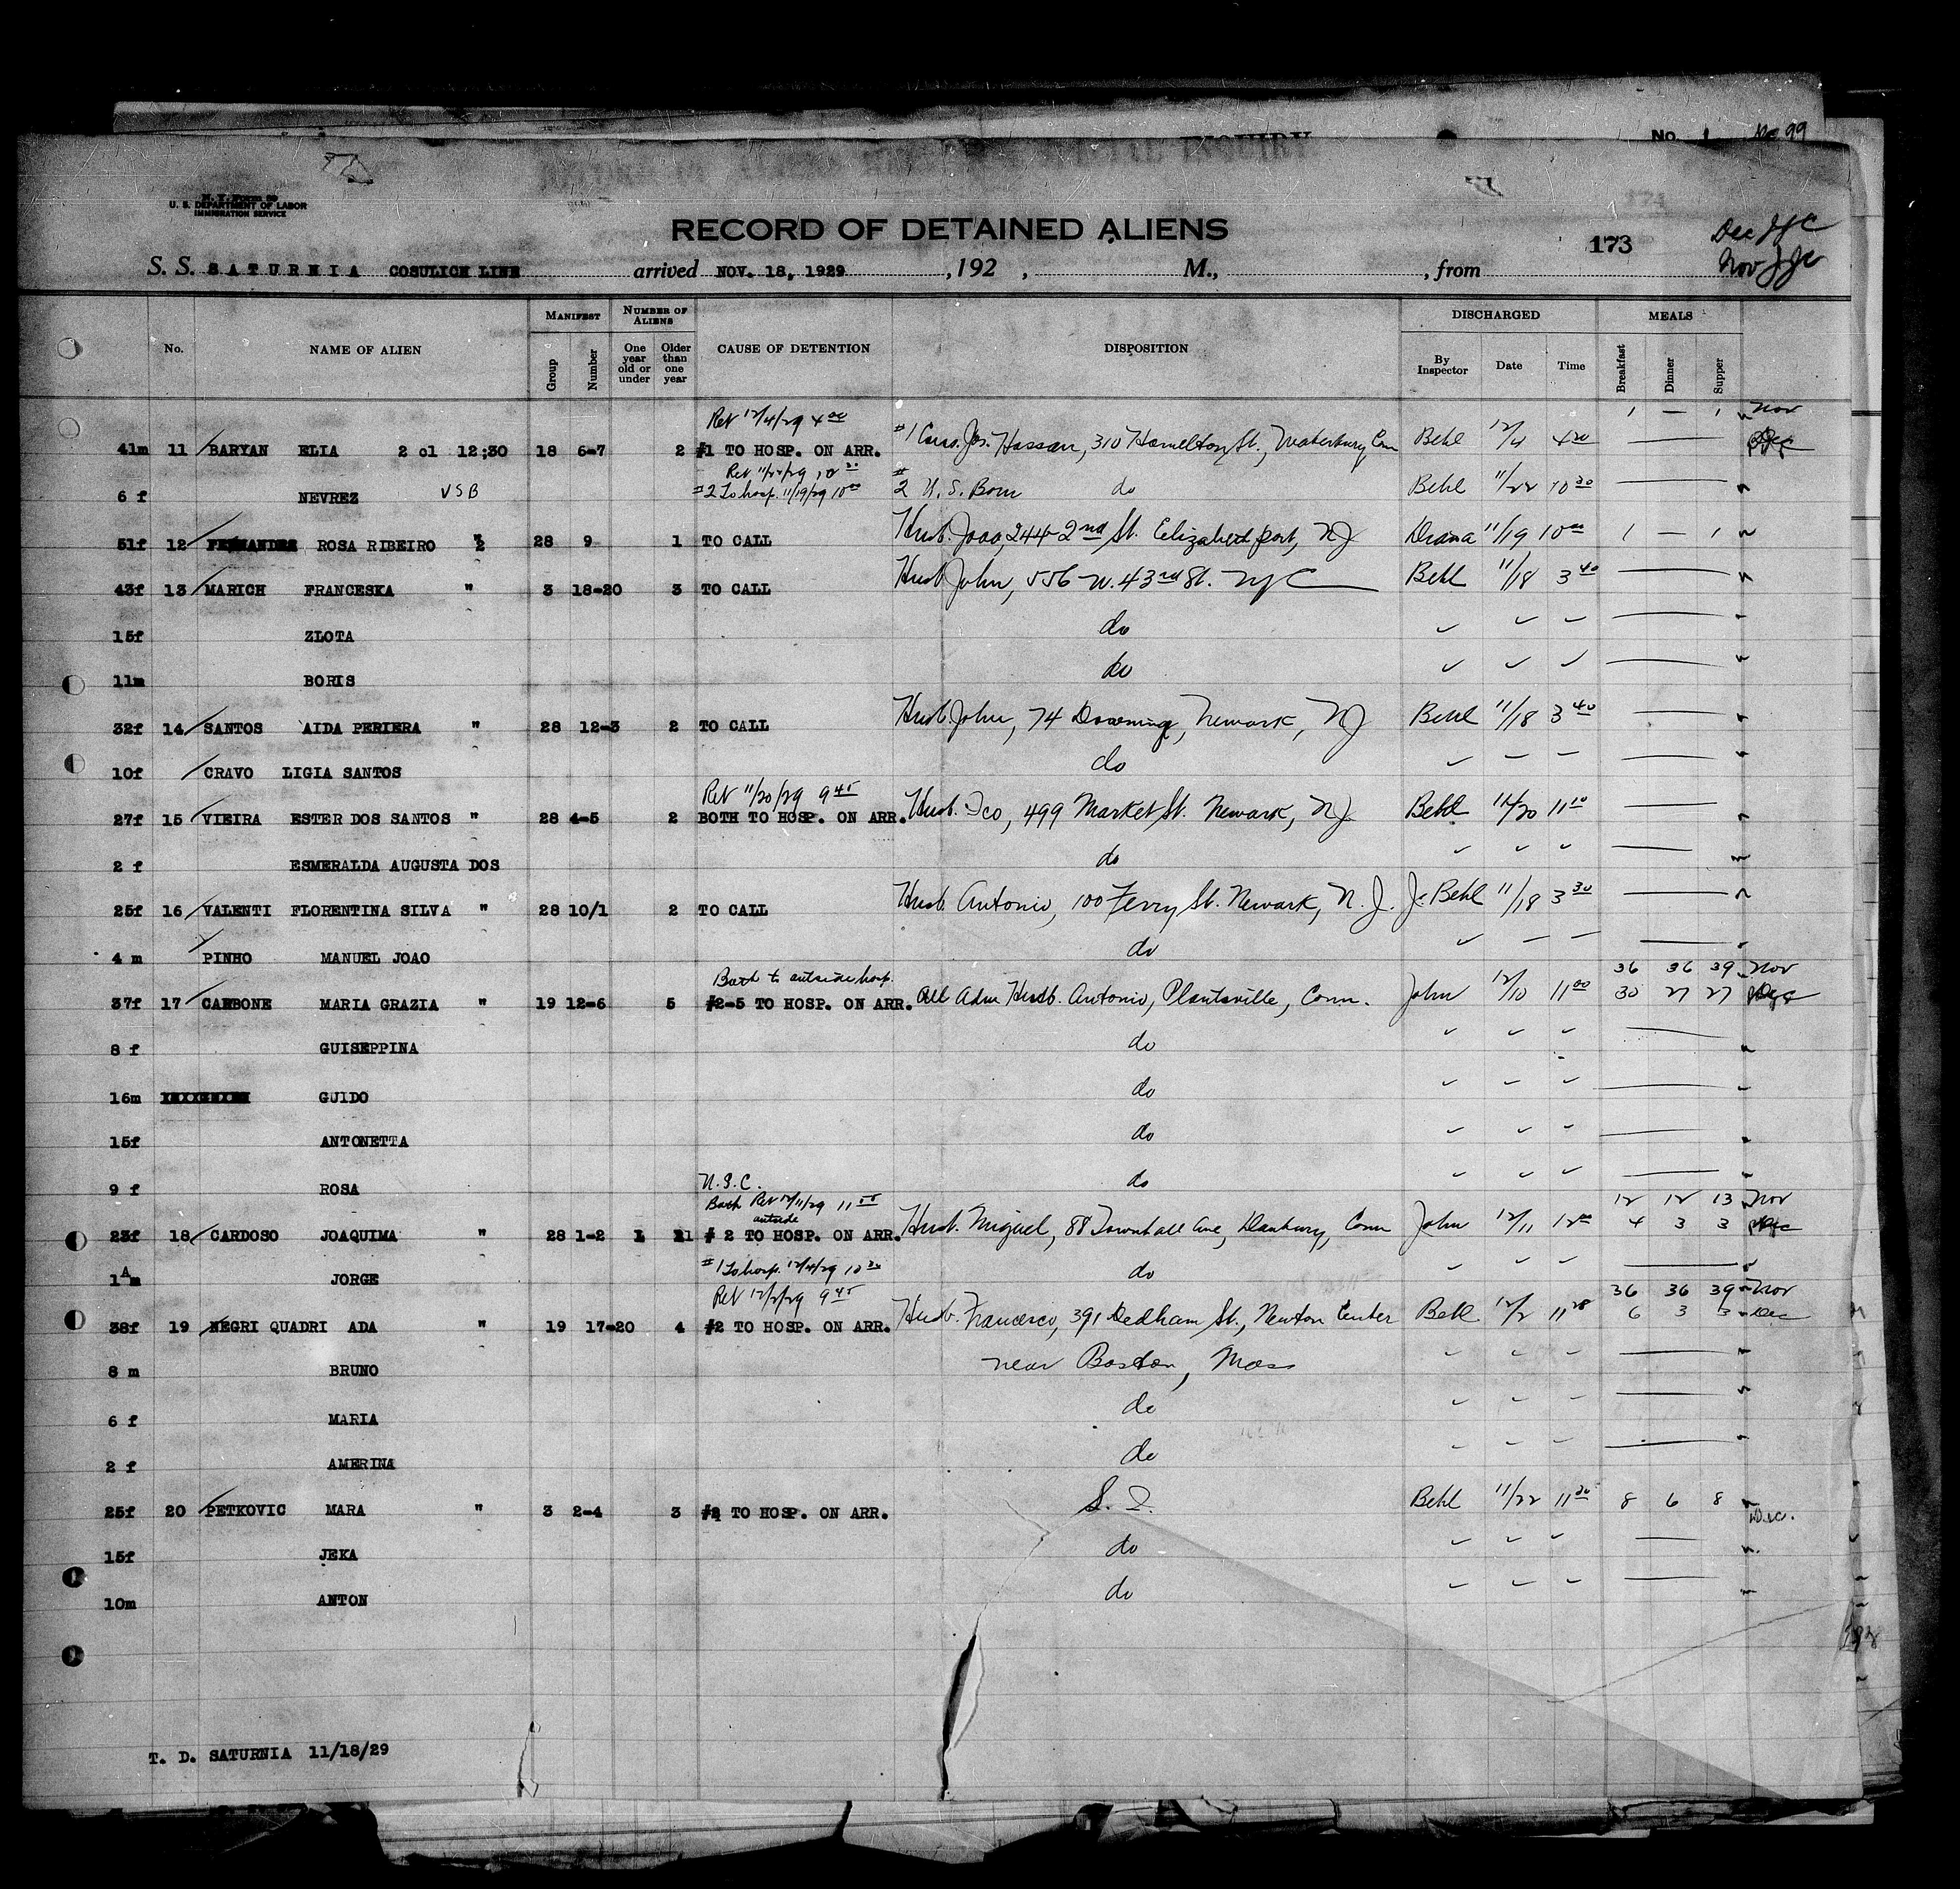 No. 1
N. Y. Form 59
U. S. DEPARTMENT OF LABOR
IMMIGRATION SERVICE
RECORD OF DETAINED ALIENS
173
S. S. SATURNIA COSULICH LINE arrived NOV. 18, 1929 , 192 , M., , from
No. NAME OF ALIEN MANIFEST Group Number NUMBER OF ALIENS One year old or under Older than one year CAUSE OF DETENTION DISPOSITION DISCHARGED By Inspector Date Time MEALS Breakfast Dinner Supper
Ret 12/4/29 4 00 1 — 1 Nov
41m 11 BARYAN ELIA 2 cl 12;30 18 6-7 2 #1 TO HOSP. ON ARR. #1 Cous. Jos. Hassan, 310 Hamelton St., Waterbury Conn Behl 12/4 4 20 Dec
6 f NEVREZ USB #2 To hosp. 11/19/29 10 00 #2 U.S. Born do Behl 11/22 10 30
51f 12 FERNANDEZ ROSA RIBEIRO 28 9 1 TO CALL Husb. Joao, 244-2nd St. Elizabethport, NJ Drama 11/19 10 00 1 — 1
43f 13 MARICH FRANCESKA " 3 18-20 3 TO CALL Husb John, 556 W. 43rd St. NYC Behl 11/18 3 40
15f ZLOTA do
11m BORIS do
32f 14 SANTOS AIDA PERIERA " 28 12-3 2 TO CALL Husb. John, 74 Downing, Newark, NJ Behl 11/18 3 40
10f CRAVO LIGIA SANTOS do
Ret 11/20/29 9 45
27f 15 VIEIRA ESTER DOS SANTOS " 28 4-5 2 BOTH TO HOSP. ON ARR. Husb. Fco, 499 Market St. Newark, NJ. Behl 11/20 11 10
2 f ESMERALDA AUGUSTA DOS do
25f 16 VALENTI FLORENTINA SILVA " 28 10/1 2 TO CALL Husb. Antonio, 100 Ferry St. Newark, N.J. J. Behl 11/18 3 30
4 m PINHO MANUEL JOAO do
Both to outside hosp. 36 36 39 Nov
37f 17 CARBONE MARIA GRAZIA " 19 12-6 5 #2-5 TO HOSP. ON ARR. All Adm Husb. Antonio, Plantsville, Conn. John 12/10 11 00 30 27 27 Dec
8 f GUISEPPINA do
16m GUIDO do
15f ANTONETTA do
9 f ROSA do
N.S.C.
Both Ret 12/11/29 11 55 12 12 13 Nov
outside
23f 18 CARDOSO JOAQUIMA " 28 1-2 1 1 # 2 TO HOSP. ON ARR. Husb. Miguel, 88 Townhall Ave, Danbury, Conn John 12/11 12 00 4 3 3 Dec
1 m JORGE #1 To hosp. 12/4/29 10 30 do
Ret 12/2/29 9 45 36 36 39 Nov
38f 19 NEGRI QUADRI ADA " 19 17-20 4 #2 TO HOSP. ON ARR. Husb. Francesco, 391 Dedham St., Newton Center Behl 12/2 11 28 6 3 3 Dec
8 m BRUNO near Boston, Mass
6 f MARIA do
2 f AMERINA do
25f 20 PETKOVIC MARA " 3 2-4 3 TO HOSP. ON ARR. S. I. Behl 11/22 11 30 8 6 8
15f JEKA do
10m ANTON do
T. D. SATURNIA 11/18/29